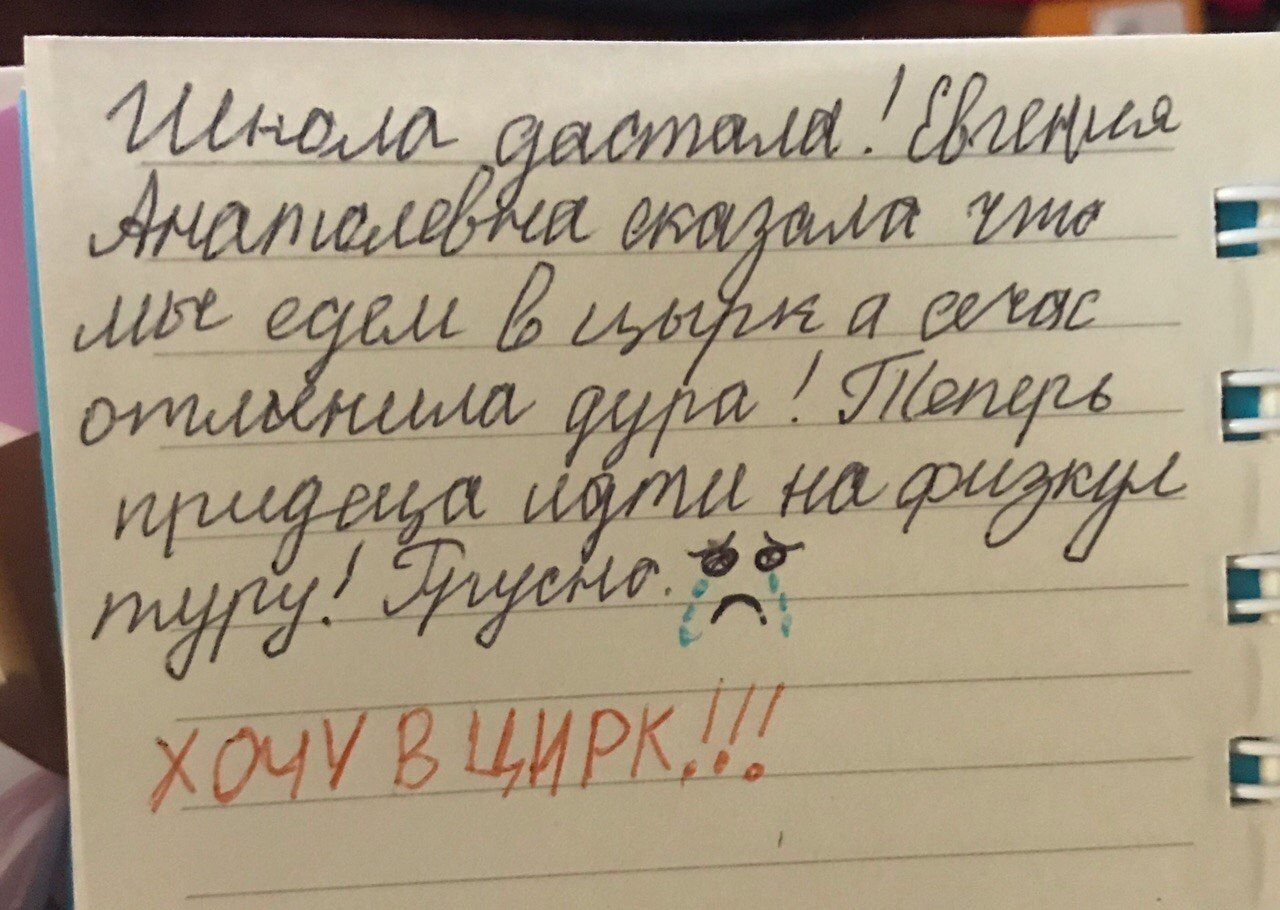 Школа дастала! Евгения
Анатолевна сказала что
мы едем в цырк а сечас
отмынила дура! Теперь
придеца идти на физкул
туру! Грусно.
ХОЧУ В ЦИРК!!!